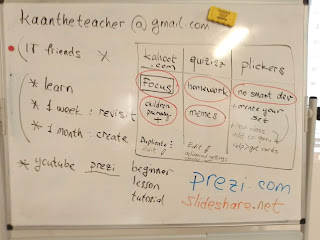 kaantheteacher @ gmail.com
IT friends
kahoot
.com
quizizz
plickers
Focus
homework
no smart dev
children
memes
create your
set
* learn
* 1 week : revisit
* 1 month : create
Duplicate
Edit
Edit
* youtube prezi
beginner
lesson
tutorial
prezi.com
slideshare.net